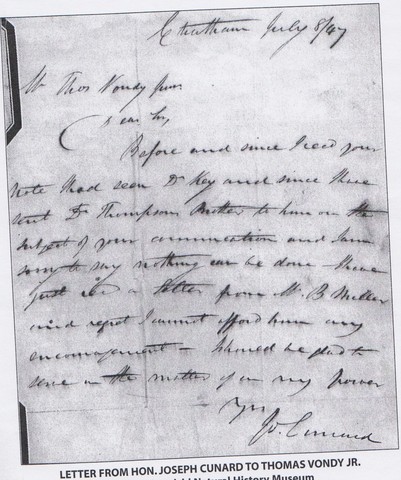 Chatham July 8/47
Mr Thos Vondy Junr
Dear Sir
Before and since I recd your
note I had seen Dr Key and since I have
sent Dr Thompson Brother to him on the
subject of your communication and I am
sorry to say nothing can be done – I have
just recd a letter from Mr. B Miller
and regret I cannot afford him any
encouragement – should be glad to
serve in the matter if in my power
Yrs
Jo. Cunard
LETTER FROM HON. JOSEPH CUNARD TO THOMAS VONDY JR.
Natural History Museum